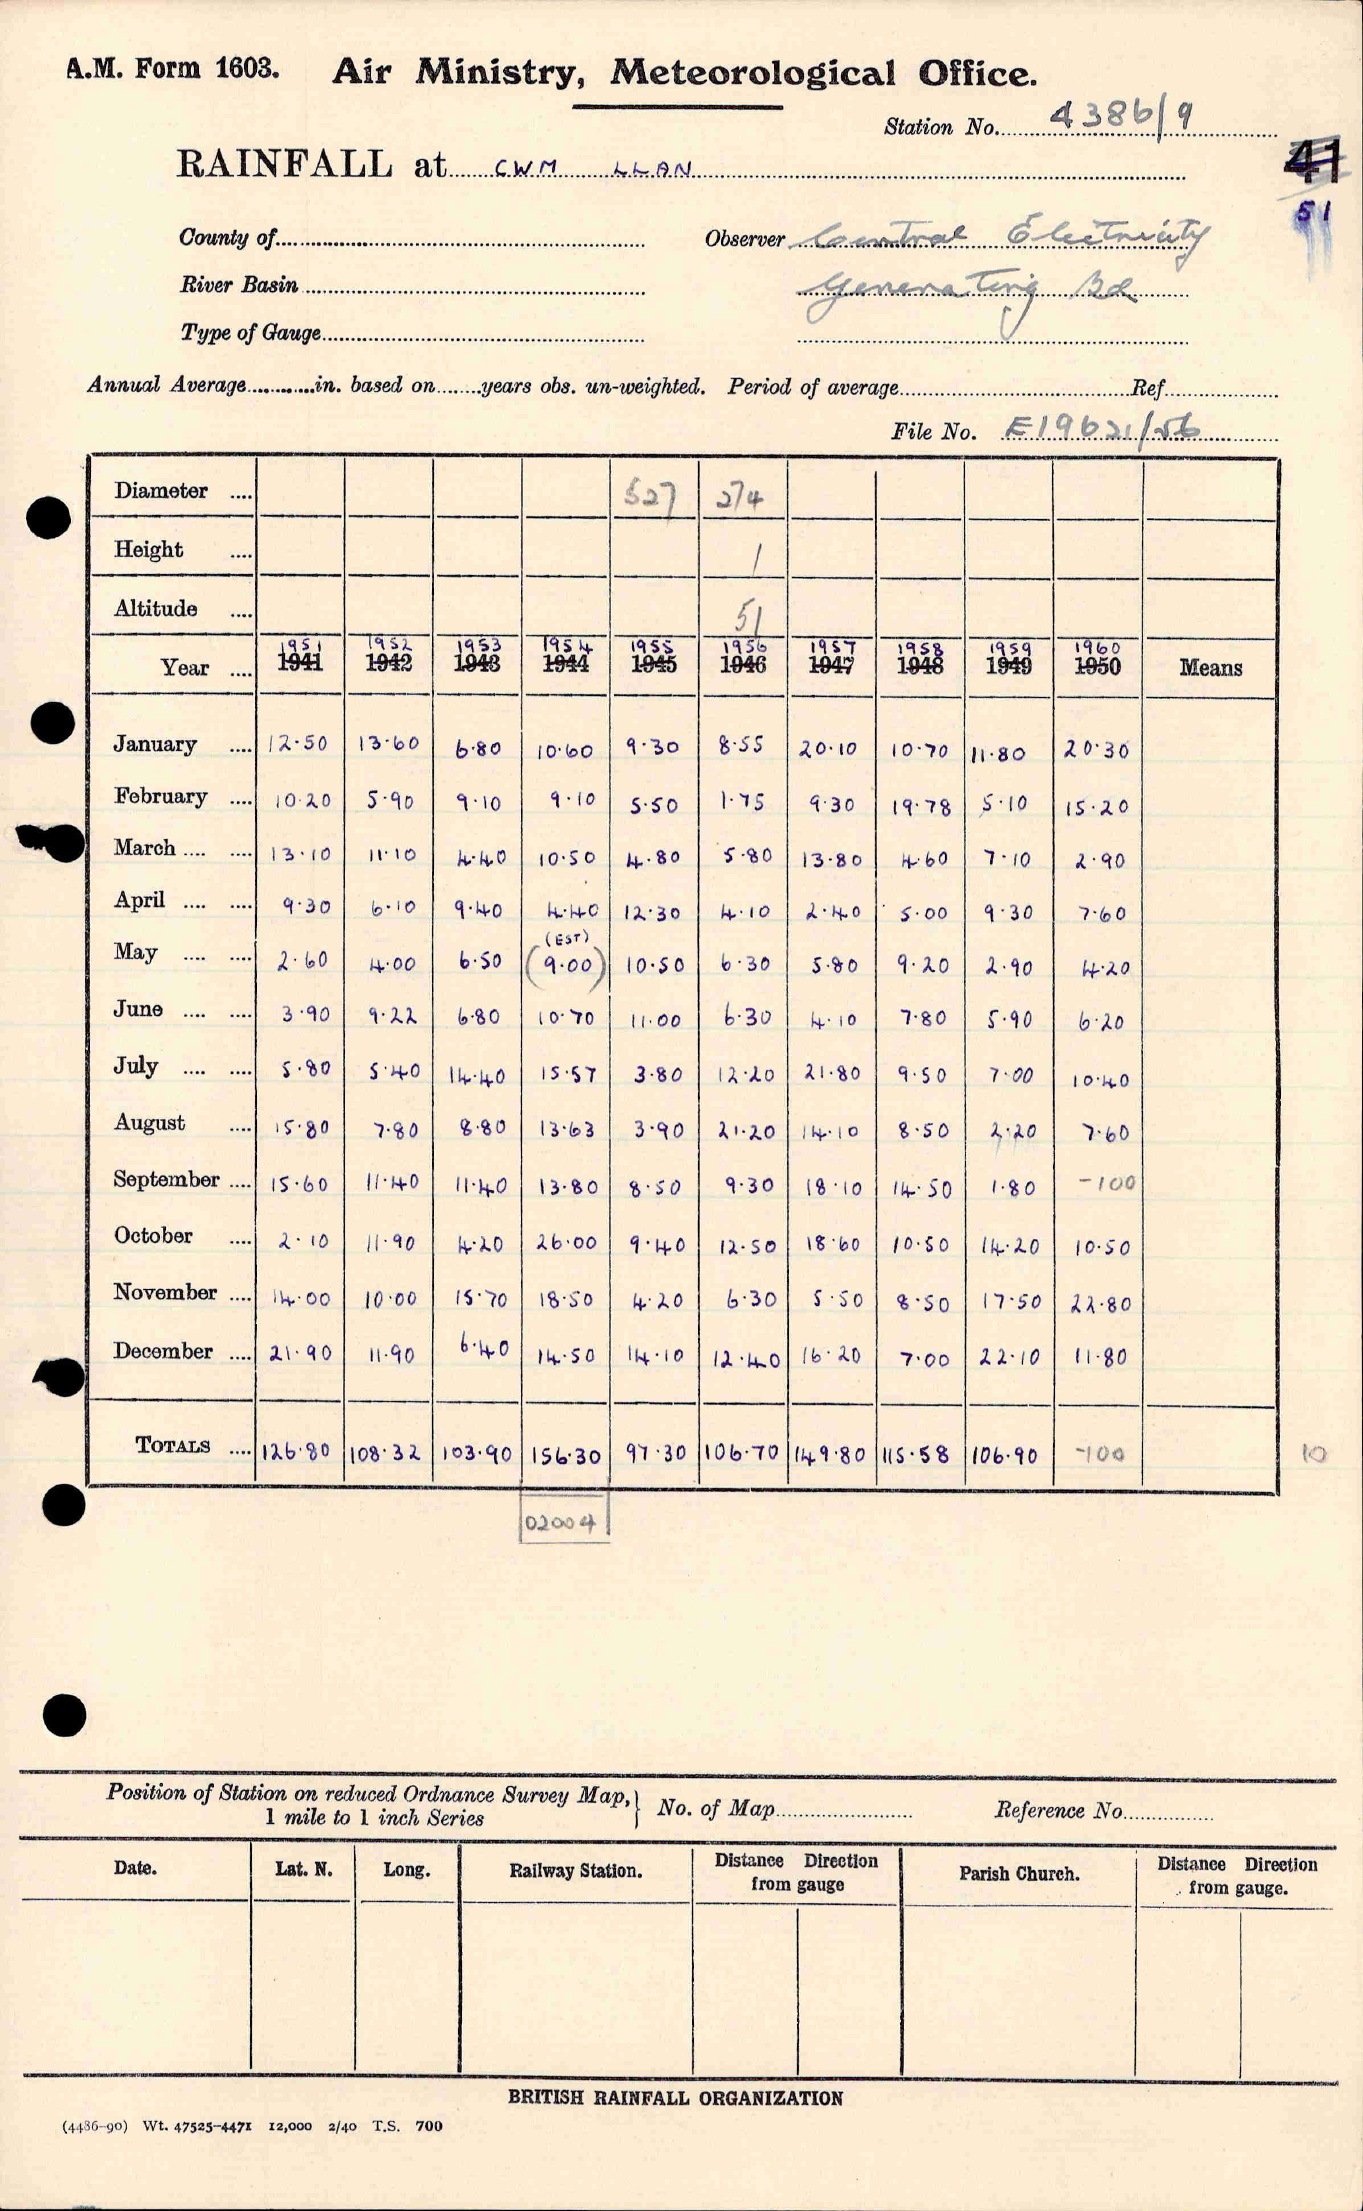 A.M. Form 1603. Air Ministry, Meteorological Office.
Station No. 4386/9
RAINFALL at CWM LLAN
41
51
County of Observer Central Electricity
River Basin Generating Bd
Type of Gauge
Annual Average in. based on years obs. un-weighted. Period of average Ref
File No. E19621/56
Diameter .... 527 274
Height .... 1
Altitude .... 51
1951 1952 1953 1954 1955 1956 1957 1958 1959 1960
Year .... 1941 1942 1943 1944 1945 1946 1947 1948 1949 1950 Means
January .... 12.50 13.60 6.80 10.60 9.30 8.55 20.10 10.70 11.80 20.30
February .... 10.20 5.90 9.10 9.10 5.50 1.75 9.30 19.78 5.10 15.20
March .... .... 13.10 11.10 4.40 10.50 4.80 5.80 13.80 4.60 7.10 2.90
April .... .... 9.30 6.10 9.40 4.40 12.30 4.10 2.40 5.00 9.30 7.60
(EST)
May .... .... 2.60 4.00 6.50 (9.00) 10.50 6.30 5.80 9.20 2.90 4.20
June .... .... 3.90 9.22 6.80 10.70 11.00 6.30 4.10 7.80 5.90 6.20
July .... .... 5.80 5.40 14.40 15.57 3.80 12.20 21.80 9.50 7.00 10.40
August .... 15.80 7.80 8.80 13.63 3.90 21.20 14.10 8.50 2.20 7.60
September .... 15.60 11.40 11.40 13.80 8.50 9.30 18.10 14.50 1.80 -100
October .... 2.10 11.90 4.20 26.00 9.40 12.50 18.60 10.50 14.20 10.50
November .... 14.00 10.00 15.70 18.50 4.20 6.30 5.50 8.50 17.50 22.80
December .... 21.90 11.90 6.40 14.50 14.10 12.40 16.20 7.00 22.10 11.80
TOTALS .... 126.80 108.32 103.90 156.30 97.30 106.70 149.80 115.58 106.90 -100 10
02004
Position of Station on reduced Ordnance Survey Map, 1 mile to 1 inch Series } No. of Map Reference No.
Date. Lat. N. Long. Railway Station. Distance Direction from gauge Parish Church. Distance Direction from gauge.
BRITISH RAINFALL ORGANIZATION
(4486-90) Wt. 47525-4471 12,000 2/40 T.S. 700